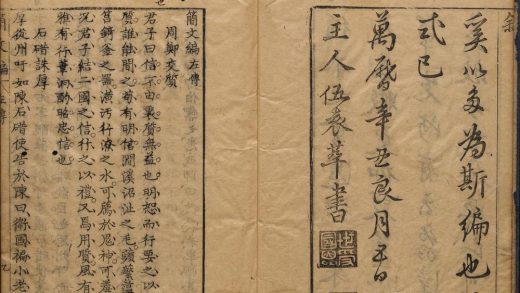 奚以多為斯編也
式已
萬曆辛丑良月吉日
主人伍袁萃書
簡文編左傳
周鄭交質
君子曰信不由衷質無益也明恕而行要之以
質誰能間之苟有明信澗溪沼沚之毛蘋蘩薀
筥錡釜之器潢汙行潦之水可薦於鬼神可羞
況君子結二國之信行之以禮又焉用質風有
雅有行葦泂酌昭忠信也
石碏誅厚
厚從州吁如陳石碏使告於陳曰衛國褊小老
簡文編